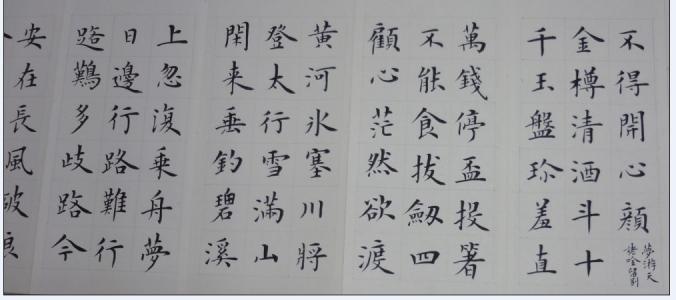 不得開心顔
夢游天
姥吟留別
金樽清酒斗十
千玉盤珍羞直
萬錢停盃投箸
不能食拔劔四
顧心茫然欲渡
黃河氷塞川將
登太行雪滿山
閑来垂釣碧溪
上忽復乘舟夢
日邊行路難行
路難多歧路今
安在長風破浪